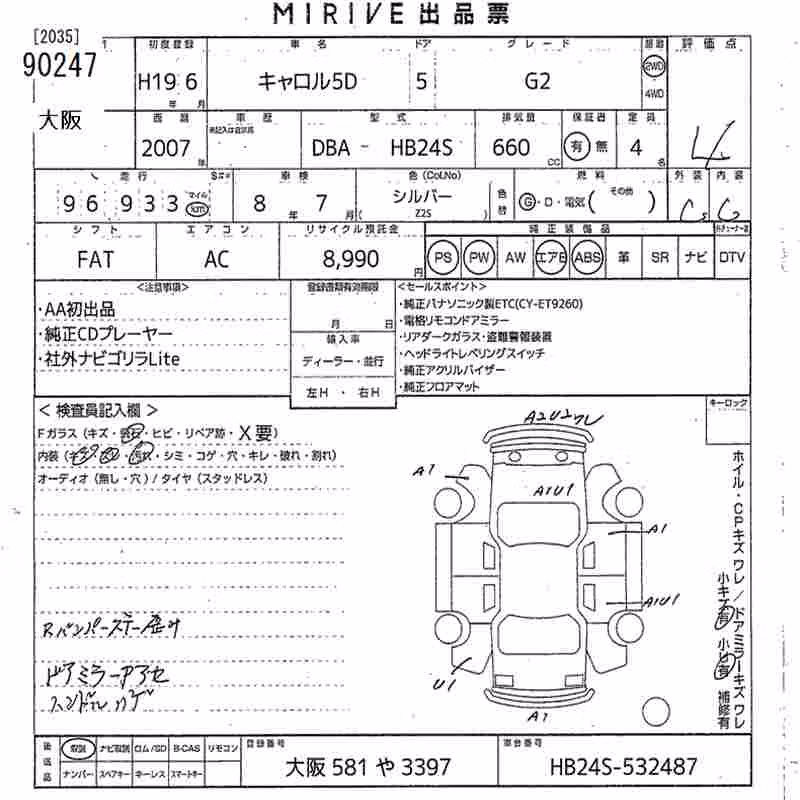 MIRIVE 出品票
[2035]
90247
大阪
初度登録 車名 ドア グレード 評価点
H19 6 キャロル5D 5 G2 2WD 4WD
年 月
西暦 車歴 型式 排気量 保証書 定員
2007年 DBA - HB24S 660 CC 有 無 4名 4
走行 車検 色(Col.No) 燃料 外装 内装
96,933 マイル km 8年 7月 シルバー 色替 G・D・電気( その他 ) C C
( Z2S )
シフト エアコン リサイクル預託金 純正装備品
FAT AC 8,990円 PS PW AW エアB ABS 革 SR ナビ DTV
<注意事項> 登録書類有効期限 <セールスポイント>
・AA初出品
・純正CDプレーヤー
・社外ナビゴリラLite
月 日
輸入車
ディーラー・並行
左H ・ 右H
・純正パナソニック製ETC(CY-ET9260)
・電格リモコンドアミラー
・リアダークガラス・盗難警報装置
・ヘッドライトレベリングスイッチ
・純正アクリルバイザー
・純正フロアマット
＜検査員記入欄＞ キーロック
Fガラス(キズ・飛石・ヒビ・リペア跡・X要)
・シミ・コゲ・穴・キレ・破れ・割れ)
オーディオ(無し・穴)/タイヤ(スタッドレス)
A2U2ワレ
A1
A1U1
A1
A1U1
U1
A1
ホイル・CPキズ ワレ/ドアミラーキズ ワレ
小キズ有 小凹有 補修有
Rバンパーステー歪み
ドアミラーアアセ
ハンドル
後送品 取説 ナビ取説 ロム/SD B-CAS リモコン
ナンバー スペアキー キーレス スマートキー
登録番号 車台番号
大阪 581 や 3397 HB24S-532487